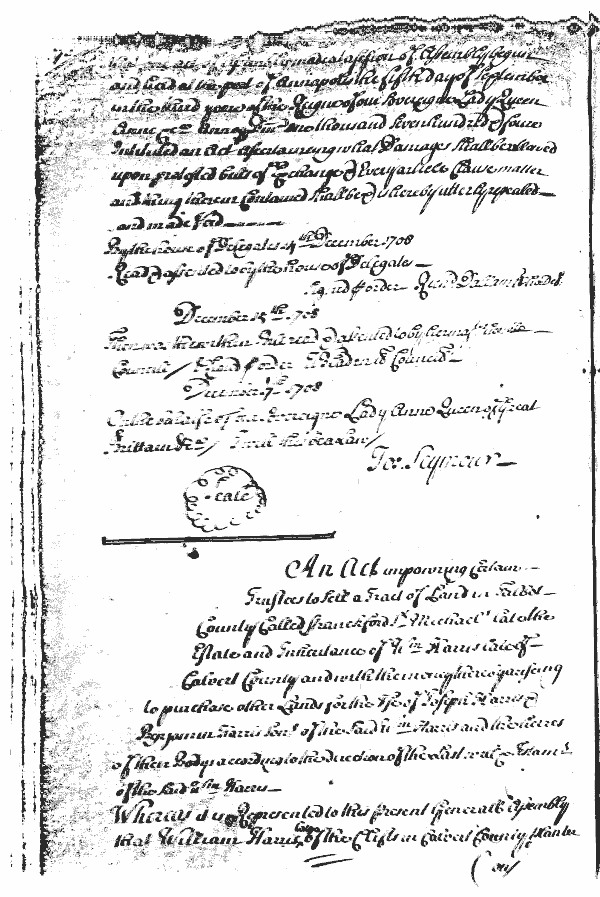 made att a session of Assembly begun
and held at the port of Annapolis the fifth Day of September
in the third year of the Reigne of our Sovereigne Lady Queen
Anne &c Anno Dm one thousand seven hundred & foure
Intituled an Act ascertaineing what Damages shall be allowed
upon protested bills of Exchange & Every article Clause matter
and thing therein Contained shall be & is hereby utterly repealed
and made Void
By the house of Delegates 4th December 1708
Read & assented to by the house of Delegates
Signed p order Richd Dallam
December 1708
Councill / Signd p order W Bladen Cl Councill
December 1708
On the behalfe of our Sovereigne Lady Anne Queen of Great
Brittain &ca / I will this be a Law /
Jo: Seymour
Seale
An Act impowring Certain
Trustees to Sell a Tract of Land in Talbot
County Called Franckford St Michael's late the
Estate and Inheritance of Wm Harris late of
Calvert County and with the money thereof ariseing
to purchase other Lands for the Use of Joseph Harris &
Benjamin Harris Sons of the said Wm Harris and the heires
of their Body according to the direction of the last will & Testamt
of the said Wm Harris
Whereas it is Represented to this present Generall Assembly
that William Harris of the Clifts in Calvert County planter